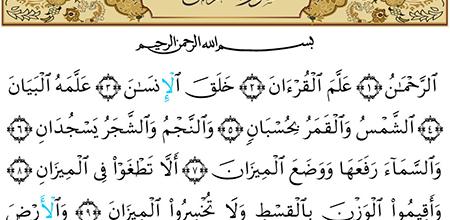 بسم الله الرحمن الرحيم
الرَّحْمَـٰنُ ﴿١﴾ عَلَّمَ الْقُرْءَانَ ﴿٢﴾ خَلَقَ الْإِنسَـٰنَ ﴿٣﴾ عَلَّمَهُ الْبَيَانَ
﴿٤﴾ الشَّمْسُ وَالْقَمَرُ بِحُسْبَانٍ ﴿٥﴾ وَالنَّجْمُ وَالشَّجَرُ يَسْجُدَانِ ﴿٦﴾
وَالسَّمَآءَ رَفَعَهَا وَوَضَعَ الْمِيزَانَ ﴿٧﴾ أَلَّا تَطْغَوْا۟ فِى الْمِيزَانِ ﴿٨﴾
وَأَقِيمُوا۟ الْوَزْنَ بِالْقِسْطِ وَلَا تُخْسِرُوا۟ الْمِيزَانَ ﴿٩﴾ وَالْأَرْضَ